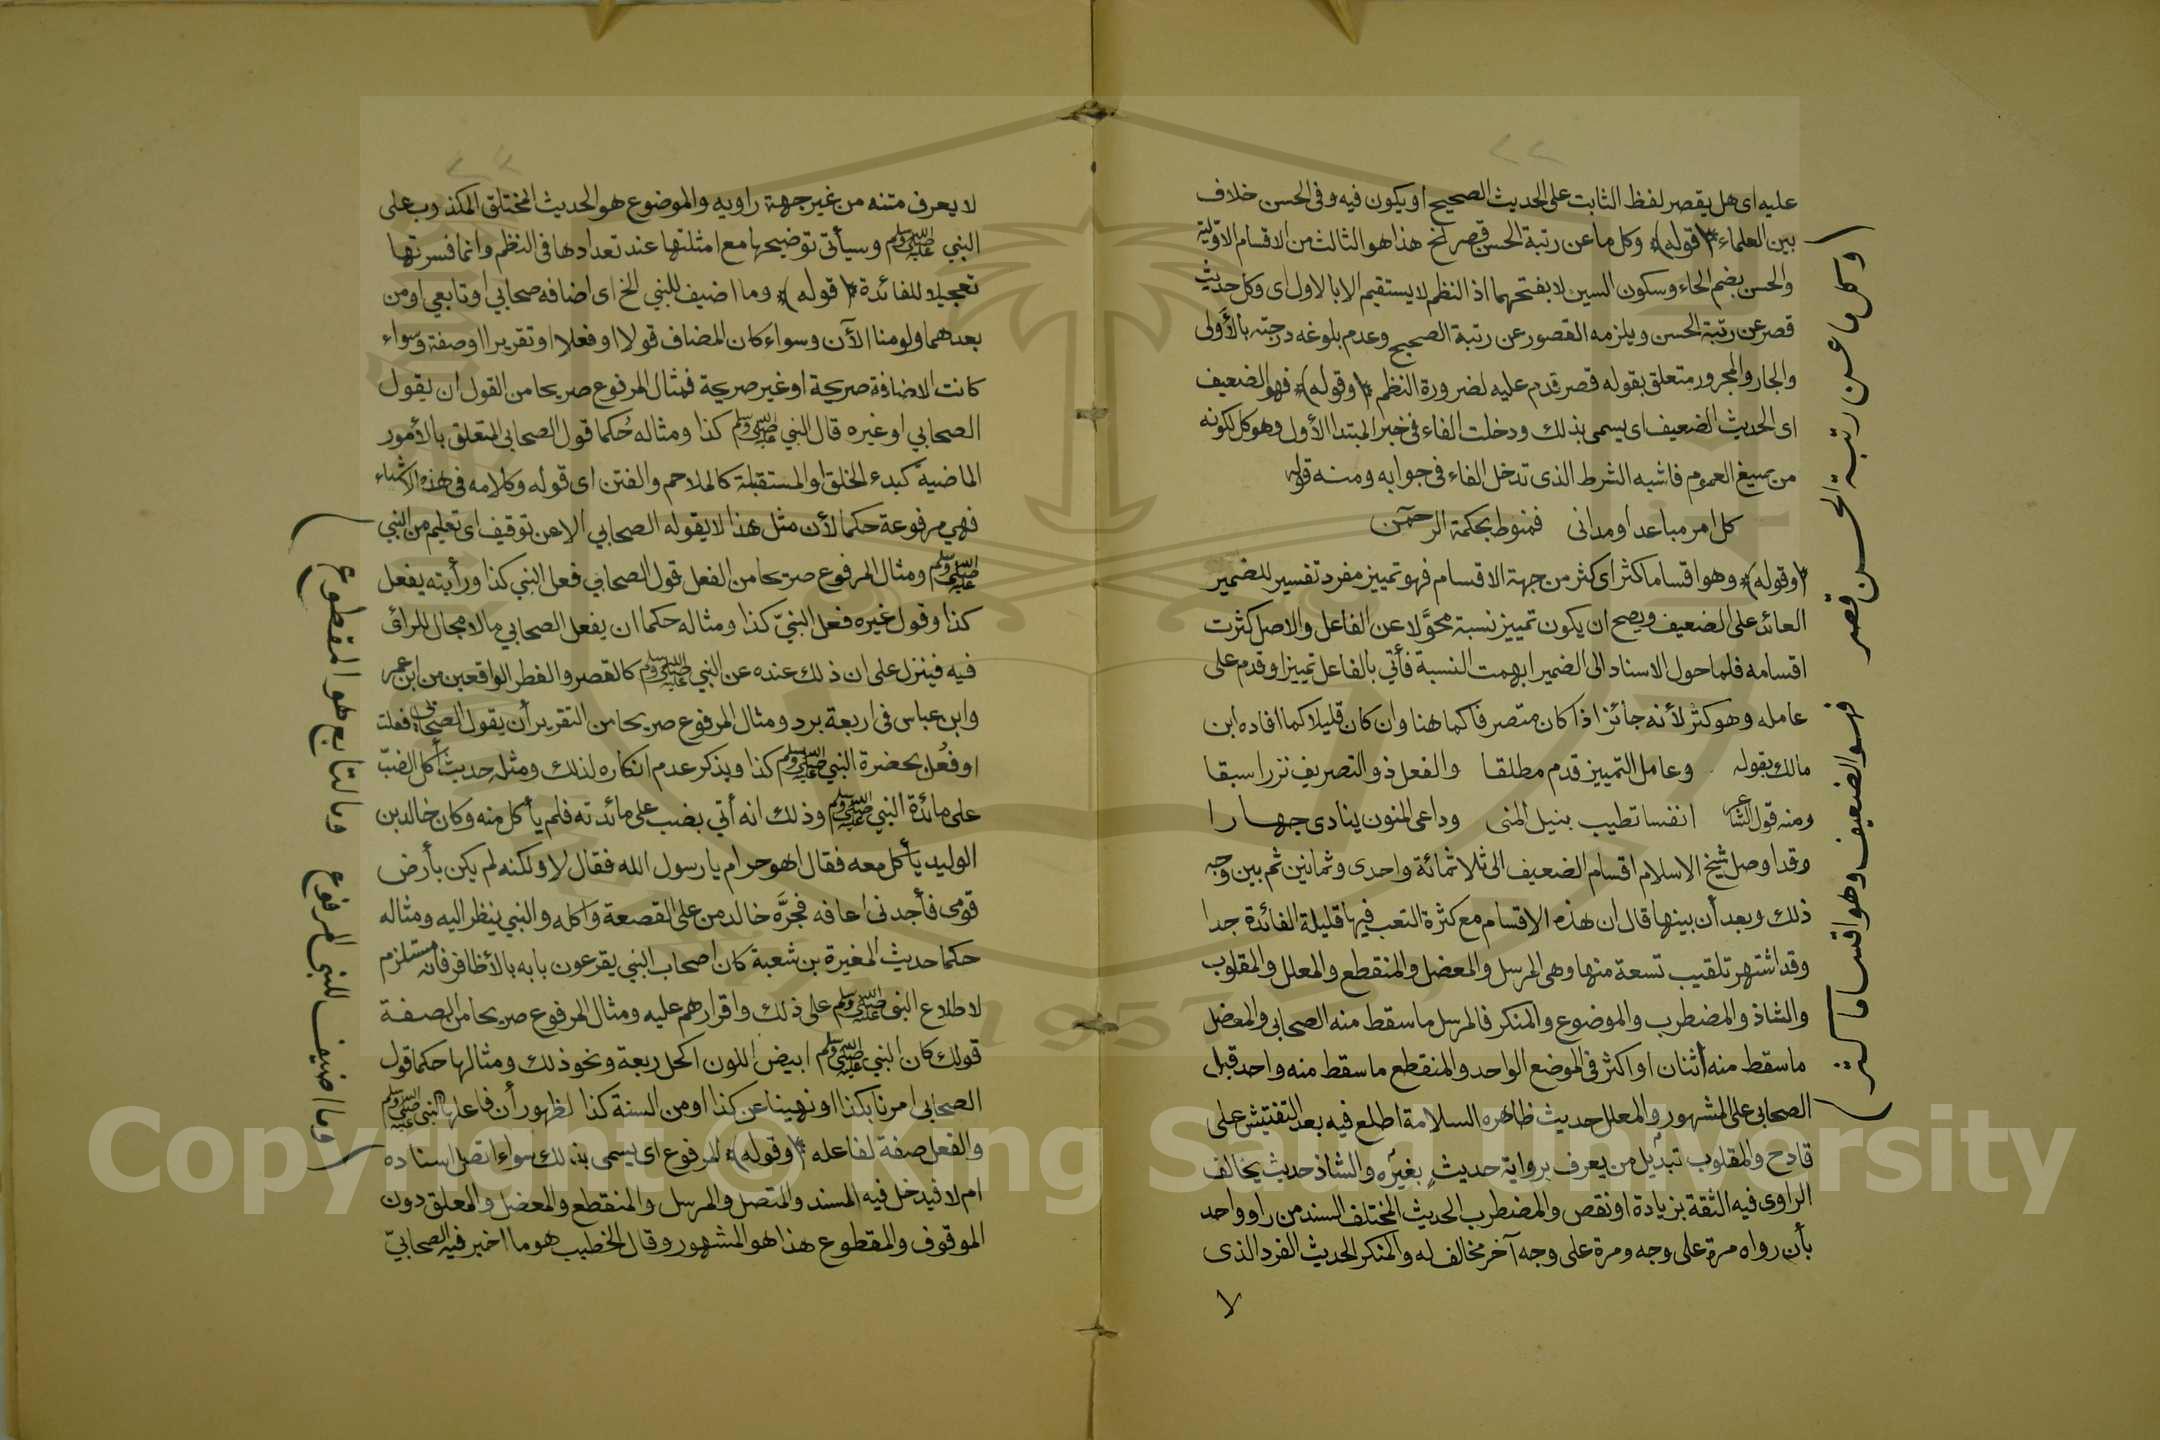 عليه اى هل يقصر لفظ الثابت على الحديث الصحيح او يكون فيه وفى الحسن خلاف
بين العلماء (قوله) وكل ما عن رتبة الحسن قصر الخ هذا هو الثالث من الاقسام الاولية
والحسن بضم الحاء وسكون السين لا بفتحهما اذ النظم لا يستقيم الا بالاول اى وكل حديث
قصر عن رتبة الحسن ويلزمه القصور عن رتبة الصحيح وعدم بلوغه درجته بالأولى
والجار والمجرور متعلق بقوله قصر قدم عليه لضرورة النظم (وقوله) فهو الضعيف
اى الحديث الضعيف اى يسمى بذلك ودخلت الفاء فى خبر المبتدا الأول وهو كل لكونه
من صيغ العموم فاشبه الشرط الذى تدخل الفاء فى جوابه ومنه قوله
كل امر مباعد او مدانى فمنوط بحكمة الرحمن
(وقوله) وهو اقساما كثر اى كثر من جهة الاقسام فهو تمييز مفرد تفسير للضمير
العائد على الضعيف ويصح ان يكون تمييز نسبة محوَّلا عن الفاعل والاصل كثرت
اقسامه فلما حول الاسناد الى الضمير ابهمت النسبة فأتي بالفاعل تمييزا وقدم على
عامله وهو كثر لأنه جائز اذا كان متصرفا كما هنا وان كان قليلا كما افاده ابن
مالك بقوله وعامل التمييز قدم مطلقا والفعل ذو التصريف نزرا سبقا
ومنه قول الشاعر انفسا تطيب بنيل المنى وداعى المنون ينادى جهارا
وقد اوصل شيخ الاسلام اقسام الضعيف الى ثلاثمائة واحدى وثمانين ثم بين وجه
ذلك وبعد أن بينها قال ان هذه الاقسام مع كثرة التعب فيها قليلة الفائدة جدا
وقد اشتهر تلقيب تسعة منها وهى المرسل والمعضل والمنقطع والمعلل والمقلوب
والشاذ والمضطرب والموضوع والمنكر فالمرسل ما سقط منه الصحابى والمعضل
ما سقط منه أثنان او اكثر فى الموضع الواحد والمنقطع ما سقط منه واحد قبل
الصحابى على المشهور والمعلل حديث ظاهره السلامة اطلع فيه بعد التفتيش على
قادح والمقلوب تبديل من يعرف برواية حديثٍ بغيره والشاذ حديث يخالف
الراوى فيه الثقة بزيادة او نقص والمضطرب الحديث المختلف السند من راو واحد
بأن رواه مرة على وجه ومرة على وجه آخر مخالف له والمنكر الحديث الفرد الذى
لا
(وكل ما عن رتبة الحسن قصر فهو الضعيف وهو اقساما كثر)
لا يعرف متنه من غير جهة راويه والموضوع هو الحديث المختلق المكذوب على
النبي ﷺ وسيأتى توضيحها مع امثلتها عند تعدادها فى النظم وانما فسرتها
تعجيلا للفائدة (قوله) وما اضيف للنبي الخ اى اضافه صحابي او تابعي او من
بعدهما ولو منا الآن وسواء كان المضاف قولا او فعلا او تقريرا او صفة وسواء
كانت الاضافة صريحة او غير صريحة فمثال المرفوع صريحا من القول ان يقول
الصحابي او غيره قال النبي ﷺ كذا ومثاله حُكما قول الصحابى المتعلق بالأمور
الماضية كبدء الخلق او المستقبلة كالملاحم والفتن اى قوله وكلامه فى هذه الاشياء
فهي مرفوعة حكما لأن مثل هذا لا يقوله الصحابي الا عن توقيف اى تعليم من النبي
ﷺ ومثال المرفوع صريحا من الفعل قول الصحابي فعل النبي كذا ورأيته يفعل
كذا وقول غيره فعل النبيّ كذا ومثاله حكما ان يفعل الصحابي ما لا مجال للرائ
فيه فينزل على ان ذلك عنده عن النبي ﷺ كالقصر والفطر الواقعين من ابن عمر
وابن عباس فى اربعة برد ومثال المرفوع صريحا من التقرير أن يقول الصحابى فعلت
او فُعل بحضرة النبي ﷺ كذا ويذكر عدم انكاره لذلك ومثله حديث أكل الضبّ
على مائدة النبي ﷺ وذلك انه أتي بضب على مائدته فلم يأكل منه وكان خالد بن
الوليد يأكل معه فقال اهو حرام يا رسول الله فقال لا ولكنه لم يكن بأرض
قومى فأجدنى اعافه فجرَّه خالد من على القصعة واكله والنبي ينظر اليه ومثاله
حكما حديث المغيرة بن شعبة كان اصحاب النبي يقرعون بابه بالأظافر فانه مستلزم
لاطلاع النبى ﷺ على ذلك واقرارهم عليه ومثال المرفوع صريحا من الصفة
قولك كان النبي ﷺ ابيض اللون اكحل ربعة ونحو ذلك ومثالها حكما قول
الصحابى امرنا بكذا او نهينا عن كذا او من السنة كذا لظهور أن فاعلها النبى ﷺ
والفعل صفة لفاعله (وقوله) المرفوع اى يسمى بذلك سواء اتصل اسناده
ام لا فيدخل فيه المسند والمتصل والمرسل والمنقطع والمعضل والمعلق دون
الموقوف والمقطوع هذا هو المشهور وقال الخطيب هو ما اخبر فيه الصحابيّ
(وما اضيف للنبى المرفوع وما لتابع هو المقطوع)
1957
Copyright © King Saud University